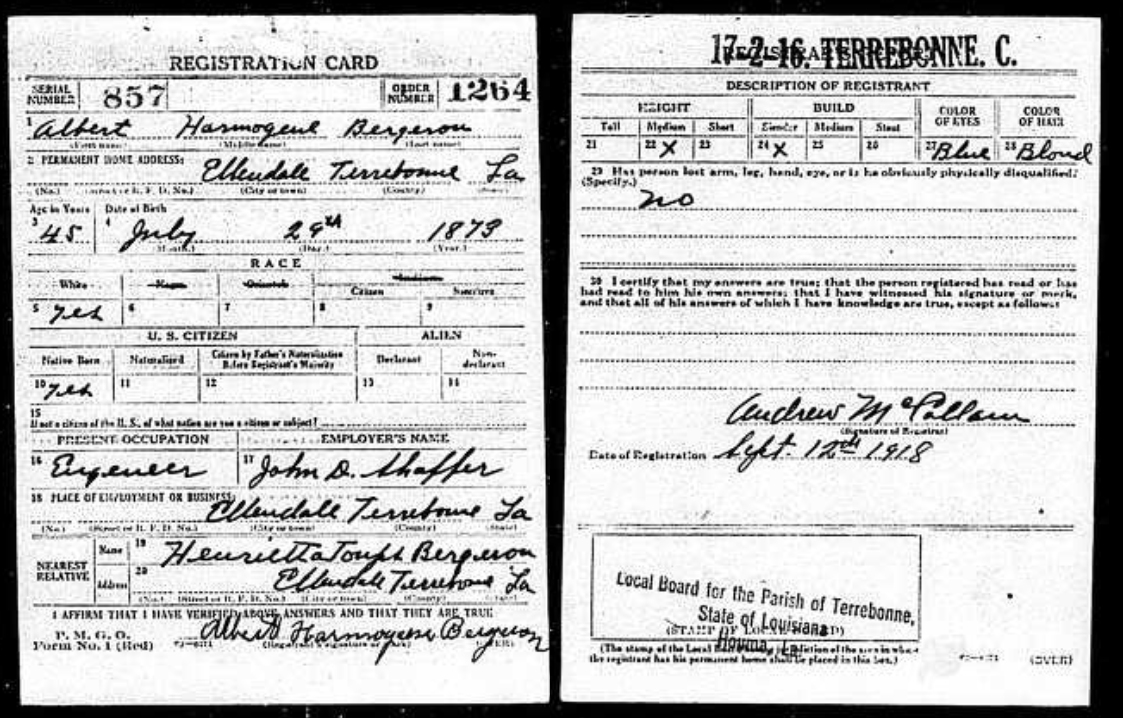 REGISTRATION CARD
SERIAL NUMBER 857 ORDER NUMBER 1264
1 Albert Harmogene Bergeron
(First name) (Middle name) (Last name)
2 PERMANENT HOME ADDRESS:
Ellendale Terrebonne La
(No.) (Street or R. F. D. No.) (City or town) (County) (State)
Age in Years Date of Birth
3 45 4 July 29th 1873
(Month.) (Day.) (Year.)
RACE
White Negro Oriental Indian
Citizen Noncitizen
5 Yes 6 7 8 9
U. S. CITIZEN ALIEN
Native Born Naturalized Citizen by Father's Naturalization Before Registrant's Majority Declarant Non-declarant
10 Yes 11 12 13 14
15
If not a citizen of the U. S., of what nation are you a citizen or subject?
PRESENT OCCUPATION EMPLOYER'S NAME
16 Engeneer 17 John D. Shaffer
18 PLACE OF EMPLOYMENT OR BUSINESS:
Ellendale Terrebonne La
(No.) (Street or R. F. D. No.) (City or town) (County) (State)
NEAREST RELATIVE Name 19 Henrietta Toups Bergeron
Address 20 Ellendale Terrebonne La
(No.) (Street or R. F. D. No.) (City or town) (County) (State)
I AFFIRM THAT I HAVE VERIFIED ABOVE ANSWERS AND THAT THEY ARE TRUE
P. M. G. O.
Form No. 1 (Red) Albert Harmogene Bergeron
(Registrant's signature or mark) (OVER)
17-2-16. TERREBONNE. C.
DESCRIPTION OF REGISTRANT
HEIGHT BUILD COLOR OF EYES COLOR OF HAIR
Tall Medium Short Slender Medium Stout
21 22 X 23 24 X 25 26 27 Blue 28 Blond
29 Has person lost arm, leg, hand, eye, or is he obviously physically disqualified?
(Specify.)
no
30 I certify that my answers are true; that the person registered has read or has
had read to him his own answers; that I have witnessed his signature or mark,
and that all of his answers of which I have knowledge are true, except as follows:
Andrew McCollam
(Signature of Registrar)
Date of Registration Sept. 12th 1918
Local Board for the Parish of Terrebonne,
State of Louisiana
(STAMP OF LOCAL BOARD)
Houma, La.
(The stamp of the Local Board having jurisdiction of the area in which
the registrant has his permanent home shall be placed in this box.)
(OVER)